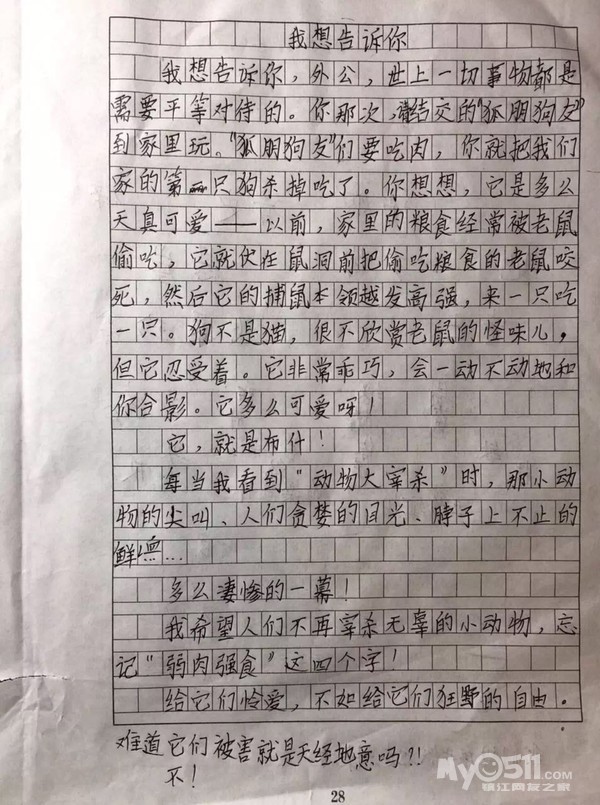 我想告诉你
我想告诉你，外公，世上一切事物都是
需要平等对待的。你那次，请结交的“狐朋狗友”
到家里玩。“狐朋狗友”们要吃肉，你就把我们
家的第一只狗杀掉吃了。你想想，它是多么
天真可爱——以前，家里的粮食经常被老鼠
偷吃，它就伏在鼠洞前把偷吃粮食的老鼠咬
死，然后它的捕鼠本领越发高强，来一只吃
一只。狗不是猫，很不欣赏老鼠的怪味儿，
但它忍受着。它非常乖巧，会一动不动地和
你合影。它多么可爱呀！
它，就是布什！
每当我看到“动物大宰杀”时，那小动
物的尖叫、人们贪婪的目光、脖子上不止的
鲜血…
多么凄惨的一幕！
我希望人们不再宰杀无辜的小动物，忘
记“弱肉强食”这四个字！
给它们怜爱，不如给它们狂野的自由。
难道它们被害就是天经地意吗？！
不！
28
My0511.com
镇江网友之家